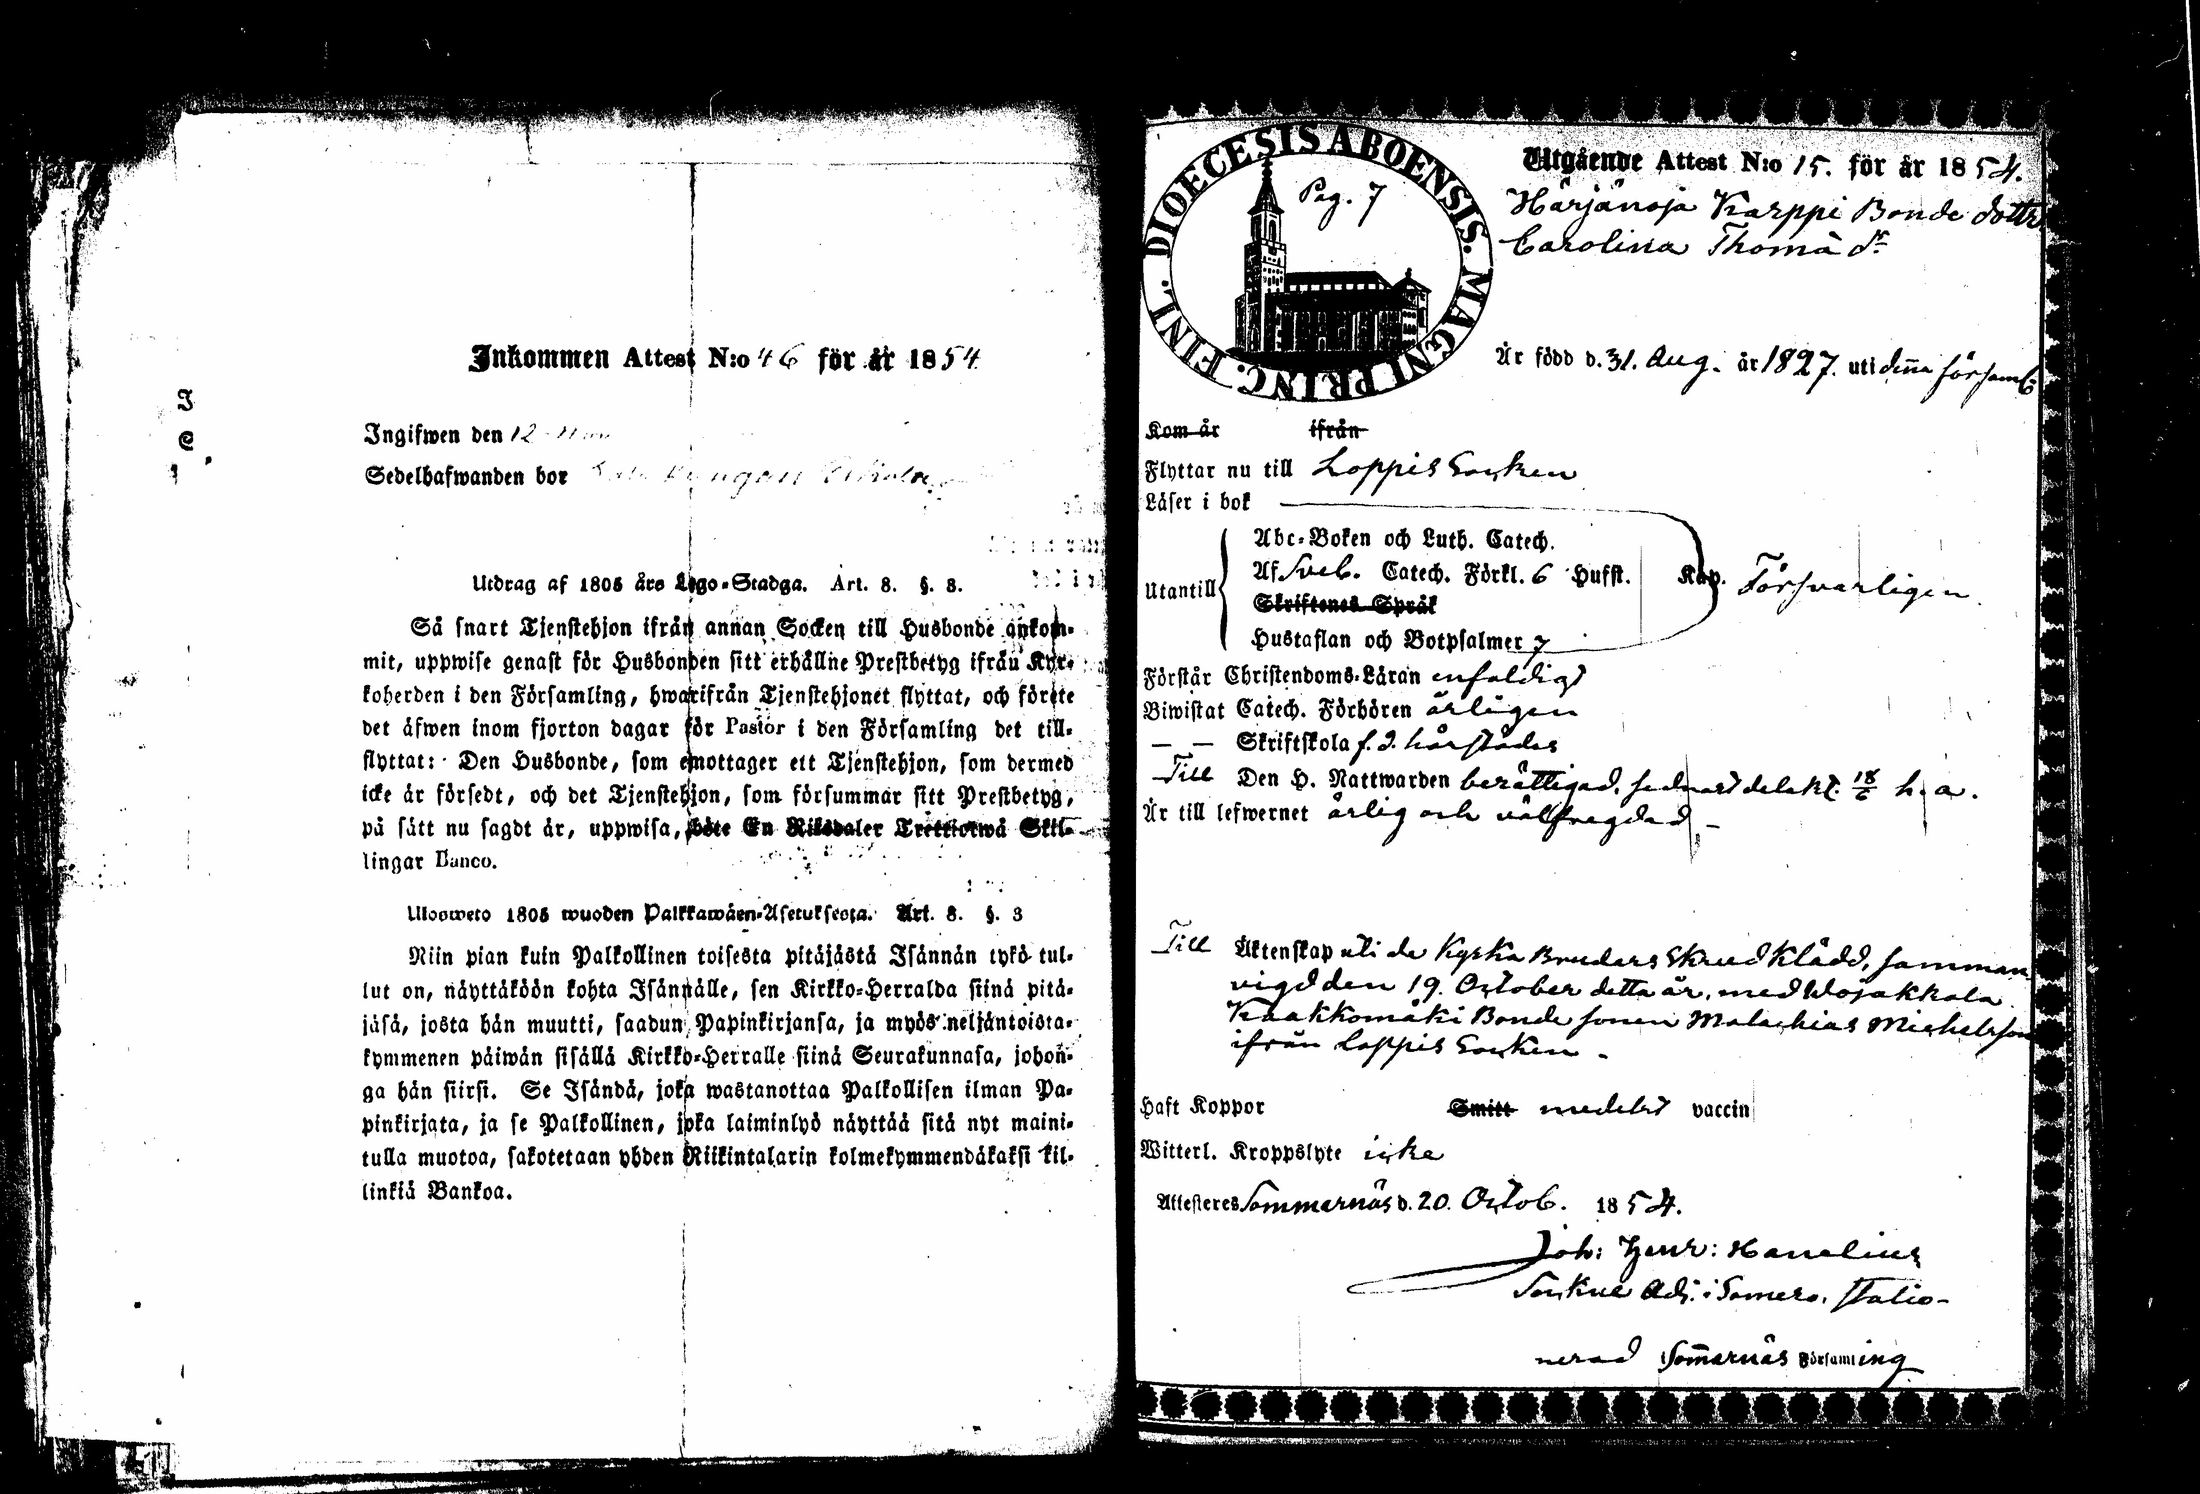 Inkommen Attest N:o 46 för år 1854
Ingifwen den 12
Sedelhafwanden bor
Utdrag af 1805 års Lego-Stadga. Art. 8. §. 3.
Så snart Tjenstehjon ifrån annan Socken till Husbonde ankom-
mit, uppwise genast för Husbonden sitt erhållne Prestbetyg ifrån Kyr-
koherden i den Församling, hwarifrån Tjenstehjonet flyttat, och förete
det äfwen inom fjorton dagar för Pastor i den Församling det till-
flyttat: Den Husbonde, som emottager ett Tjenstehjon, som dermed
icke är försedt, och det Tjenstehjon, som försummar sitt Prestbetyg,
på sätt nu sagdt är, uppwisa, böte En Riksdaler Trettiotwå Skil-
lingar Banco.
Ulosweto 1805 wuoden Palkkawäen-Asetuksesta. Art. 8. §. 3
Niin pian kuin Palkollinen toisesta pitäjästä Isännän tykö tul-
lut on, näyttäköön kohta Isännälle, sen Kirkko-Herralda siinä pitä-
jäsä, josta hän muutti, saadun Papinkirjansa, ja myös neljäntoista-
kymmenen päiwän sisällä Kirkko-Herralle siinä Seurakunnasa, johon-
ga hän siirsi. Se Isändä, joka wastanottaa Palkollisen ilman Pa-
pinkirjata, ja se Palkollinen, joka laiminlyö näyttää sitä nyt maini-
tulla muotoa, sakotetaan yhden Riikintalarin kolmekymmendäkaksi kil-
linkiä Bankoa.
DIOECESIS ABOENSIS. MAGNI PRINC. FINL.
Pag. 7
Utgående Attest N:o 15. för år 1854.
Härjänoja Karppi Bonde dottr
Carolina Thomä dr
Är född d. 31. Aug. år 1827. uti denna församl
Kom år ifrån
Flyttar nu till Loppis Socken
Läser i bok
Utantill
Abc-Boken och Luth. Catech.
Af Sveb. Catech. Förkl. 6 Hufst. Kap. Försvarligen
Skriftenes Språk
Hustaflan och Botpsalmer 7
Förstår Christendoms-Läran enfaldigt
Biwistat Catech. Förhören årligen
— — Skriftskola f. d. härstädes
Till Den H. Nattwarden berättigad, sednast delakt. 18/6 h. a.
Är till lefwernet ärlig och välfregdad –
Till Äktenskap uti de Kyrka Bruders Skrud klädd, samman
vigd den 19. October detta år, med Wojakkala
Kaakkomäki Bonde sonen Malachias Michelsson
ifrån Loppis Socken –
Haft Koppor Smitt medelst vaccin
Witterl. Kroppslyte icke
Attesteres Sommarnäs d. 20. Octob. 1854.
Joh: Henr: Hanelius
Sockne Adj. i Somero, statio-
nerad Som̄arnäs Församling